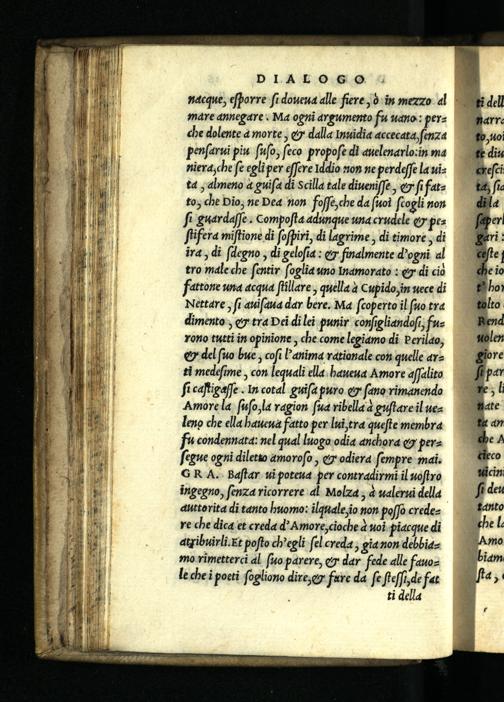 DIALOGO
nacque, esporre si doueua alle fiere, ò in mezzo al
mare annegare. Ma ogni argumento fu uano: per=
che dolente à morte, & dalla Inuidia accecata, senza
pensarui piu suso, seco propose di auelenarlo: in ma
niera, che se egli per essere Iddio non ne perdesse la ui=
ta, almeno à guisa di Scilla tale diuenisse, & si fat=
to, che Dio, ne Dea non fosse, che da suoi scogli non
si guardasse. Composta adunque una crudele & pe=
stifera mistione di sospiri, di lagrime, di timore, di
ira, di sdegno, di gelosia: & finalmente d'ogni al
tro male che sentir soglia uno Inamorato: & di ciò
fattone una acqua stillare, quella à Cupido, in uece di
Nettare, si auisaua dar bere. Ma scoperto il suo tra
dimento, & tra Dei di lei punir consigliandosi, fu=
rono tutti in opinione, che come legiamo di Perilao,
& del suo bue, cosi l'anima rationale con quelle ar=
ti medesime, con lequali ella haueua Amore assalito
si castigasse. In cotal guisa puro & sano rimanendo
Amore la suso, la ragion sua ribella à gustare il ue=
leno che ella haueua fatto per lui, tra queste membra
fu condennata: nel qual luogo odia anchora & per=
segue ogni diletto amoroso, & odiera sempre mai.
GRA. Bastar ui poteua per contradirmi il uostro
ingegno, senza ricorrere al Molza, à ualerui della
auttorita di tanto huomo: ilquale, io non posso crede=
re che dica et creda d'Amore, cioche à uoi piacque di
atribuirli. Et posto ch'egli sel creda, gia non debbia=
mo rimetterci al suo parere, & dar fede alle fauo=
le che i poeti sogliono dire, & fare da se stessi, de fat
ti della